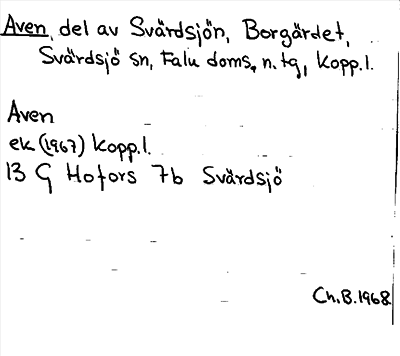 Aven, del av Svärdsjön, Borgärdet,
Svärdsjö sn, Falu doms. n. tg, Kopp.l.
Aven
ek (1967) Kopp.l.
13 G Hofors 7b Svärdsjö
Ch.B.1968